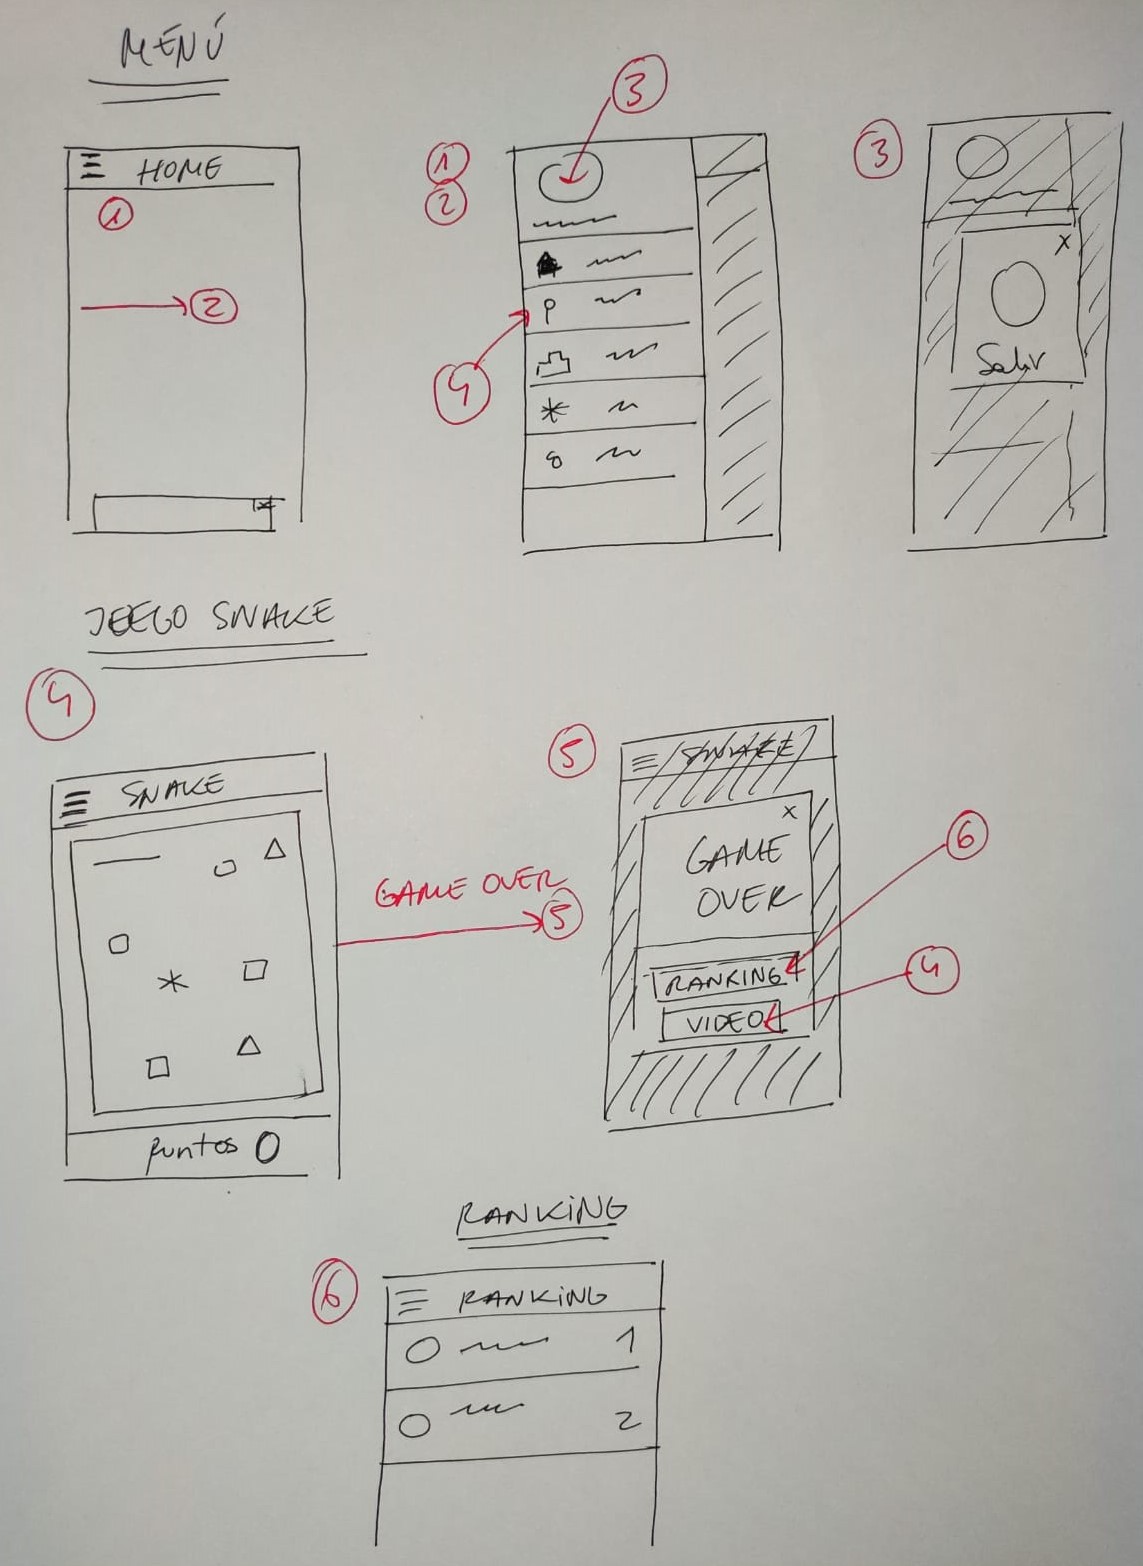 MENÚ
3
HOME
1
2
1
2
4
3
X
Salir
JUEGO SNAKE
4
SNAKE
Puntos 0
GAME OVER
5
5
SNAKE
X
GAME
OVER
RANKING
VIDEO
6
4
RANKING
6
RANKING
1
2